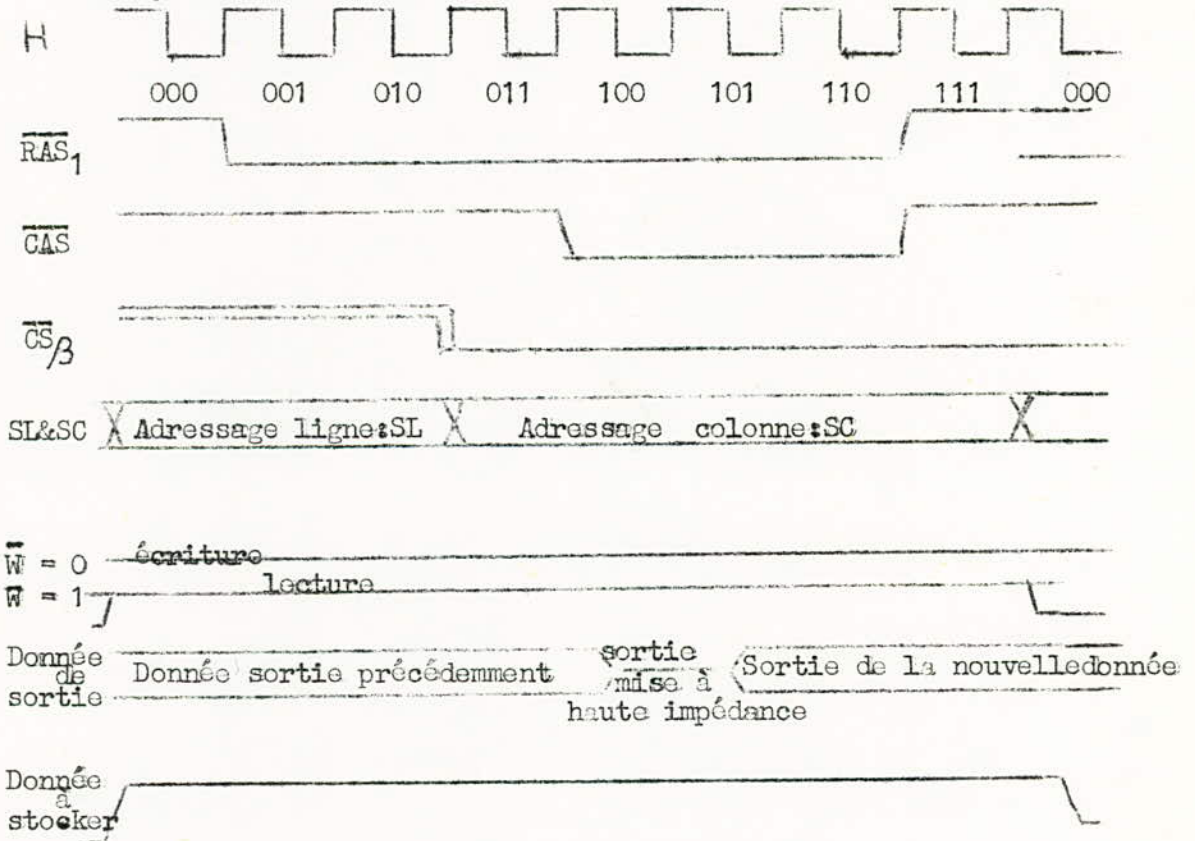 H
000 001 010 011 100 101 110 111 000
RAS1
CAS
CSβ
SL&SC Adressage ligne:SL Adressage colonne:SC
W = 0 écriture
W = 1 lecture
Donnée de sortie
Donnée sortie précédemment
sortie mise à haute impédance
Sortie de la nouvelledonnée
Donnée à stocker